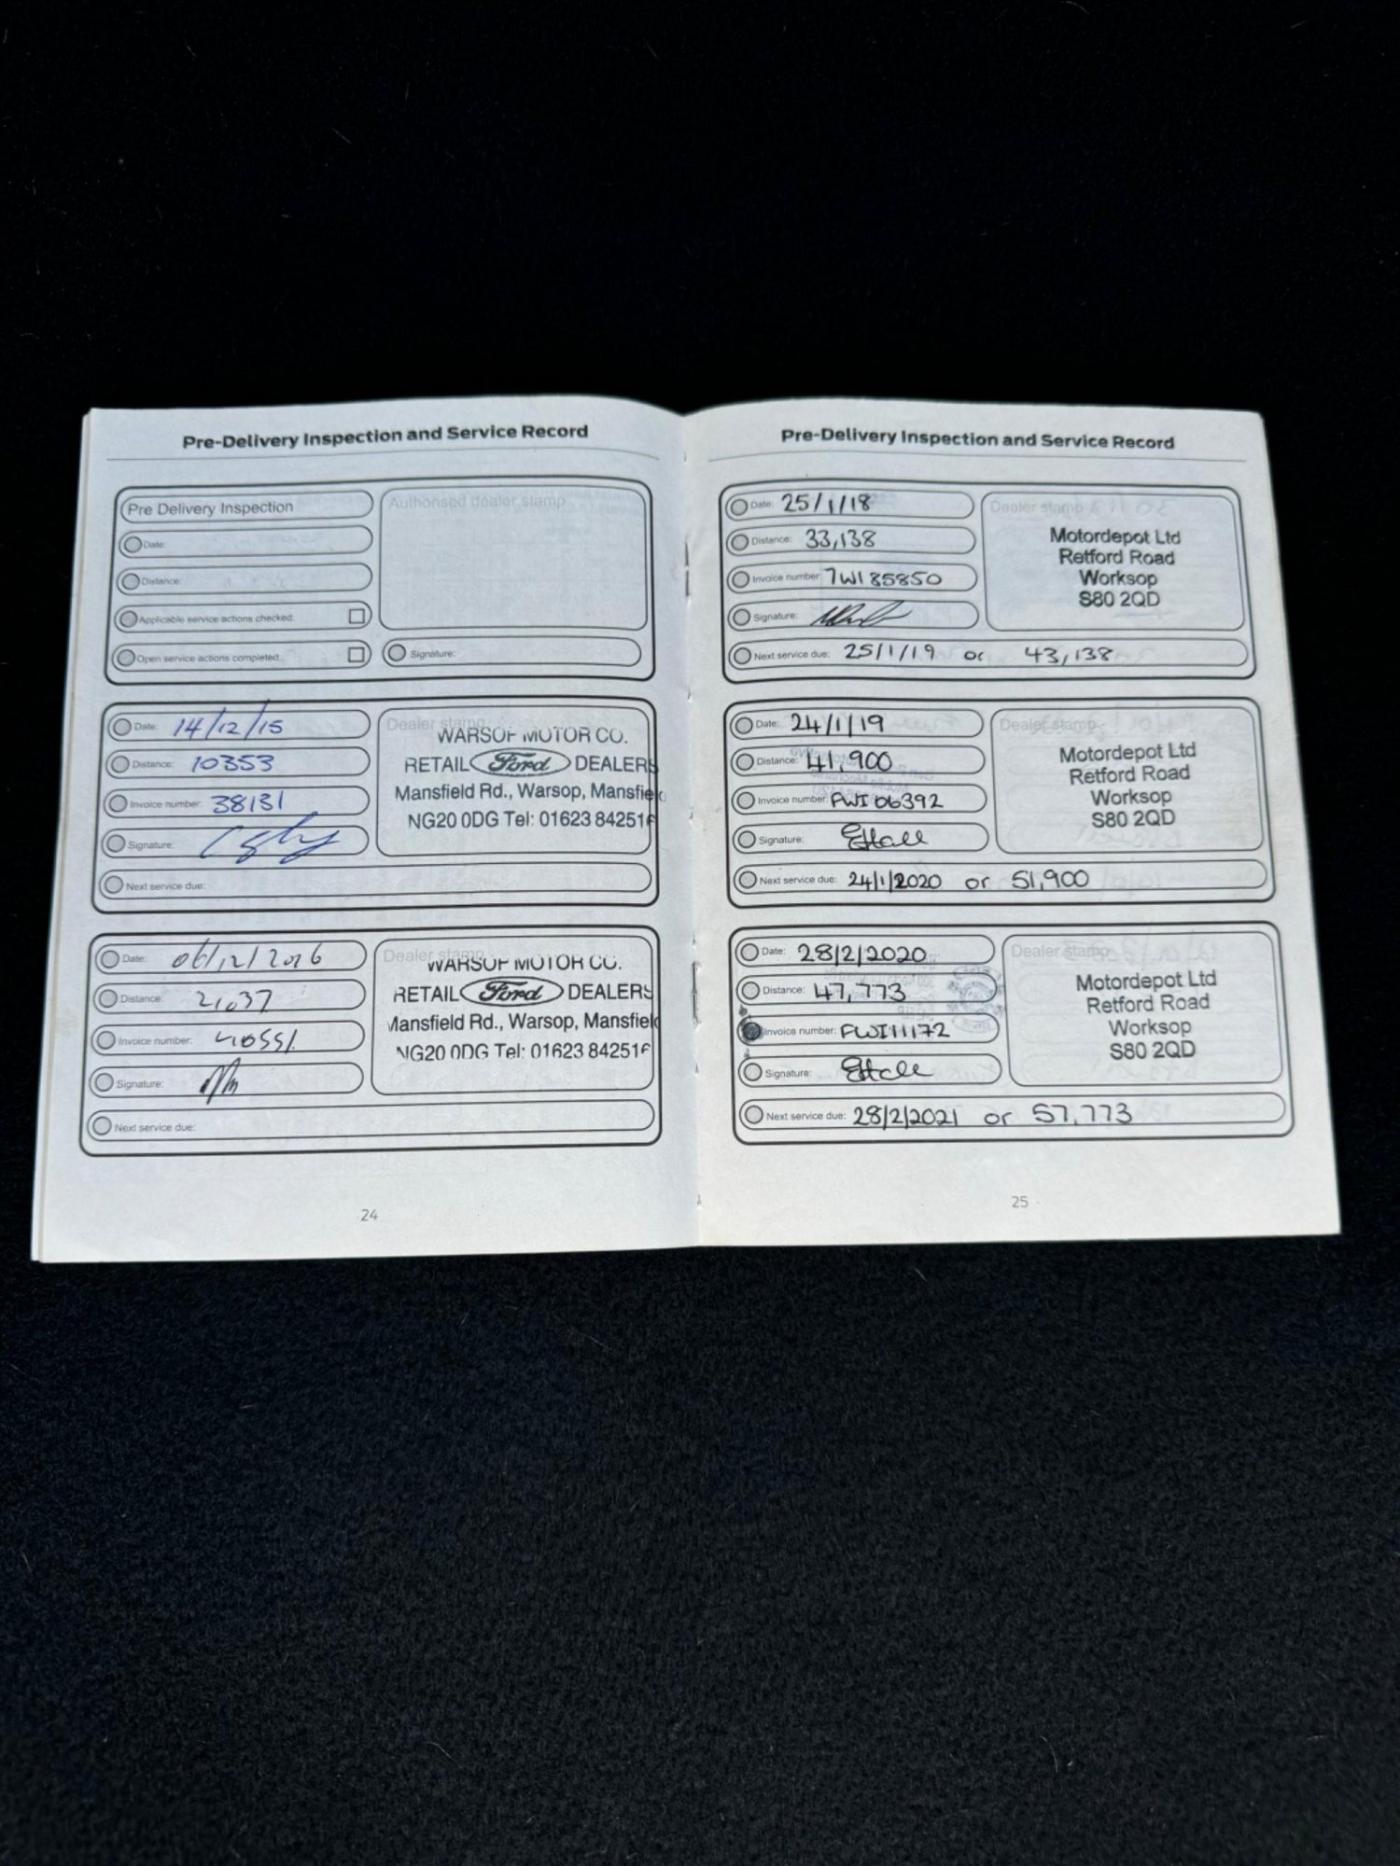 Pre-Delivery Inspection and Service Record
Pre Delivery Inspection
Authorised dealer stamp
Date:
Distance:
Applicable service actions checked:
Open service actions completed:
Signature:
Date: 14/12/15
Distance: 10353
Invoice number: 38131
Signature:
Next service due:
Dealer stamp
WARSOP MOTOR CO.
RETAIL Ford DEALERS
Mansfield Rd., Warsop, Mansfield
NG20 0DG Tel: 01623 84251
Date: 06/12/2016
Distance: 21037
Invoice number:
Signature:
Next service due:
Dealer stamp
WARSOP MOTOR CO.
RETAIL Ford DEALERS
Mansfield Rd., Warsop, Mansfield
NG20 0DG Tel: 01623 84251
24
Pre-Delivery Inspection and Service Record
Date: 25/1/18
Distance: 33,138
Invoice number: 7WI85850
Signature:
Next service due: 25/1/19 or 43,138
Dealer stamp
Motordepot Ltd
Retford Road
Worksop
S80 2QD
Date: 24/1/19
Distance: 41,900
Invoice number: PWI06392
Signature: EHall
Next service due: 24/1/2020 or 51,900
Dealer stamp
Motordepot Ltd
Retford Road
Worksop
S80 2QD
Date: 28/2/2020
Distance: 47,773
Invoice number: PWI11172
Signature: EHall
Next service due: 28/2/2021 or 57,773
Dealer stamp
Motordepot Ltd
Retford Road
Worksop
S80 2QD
25